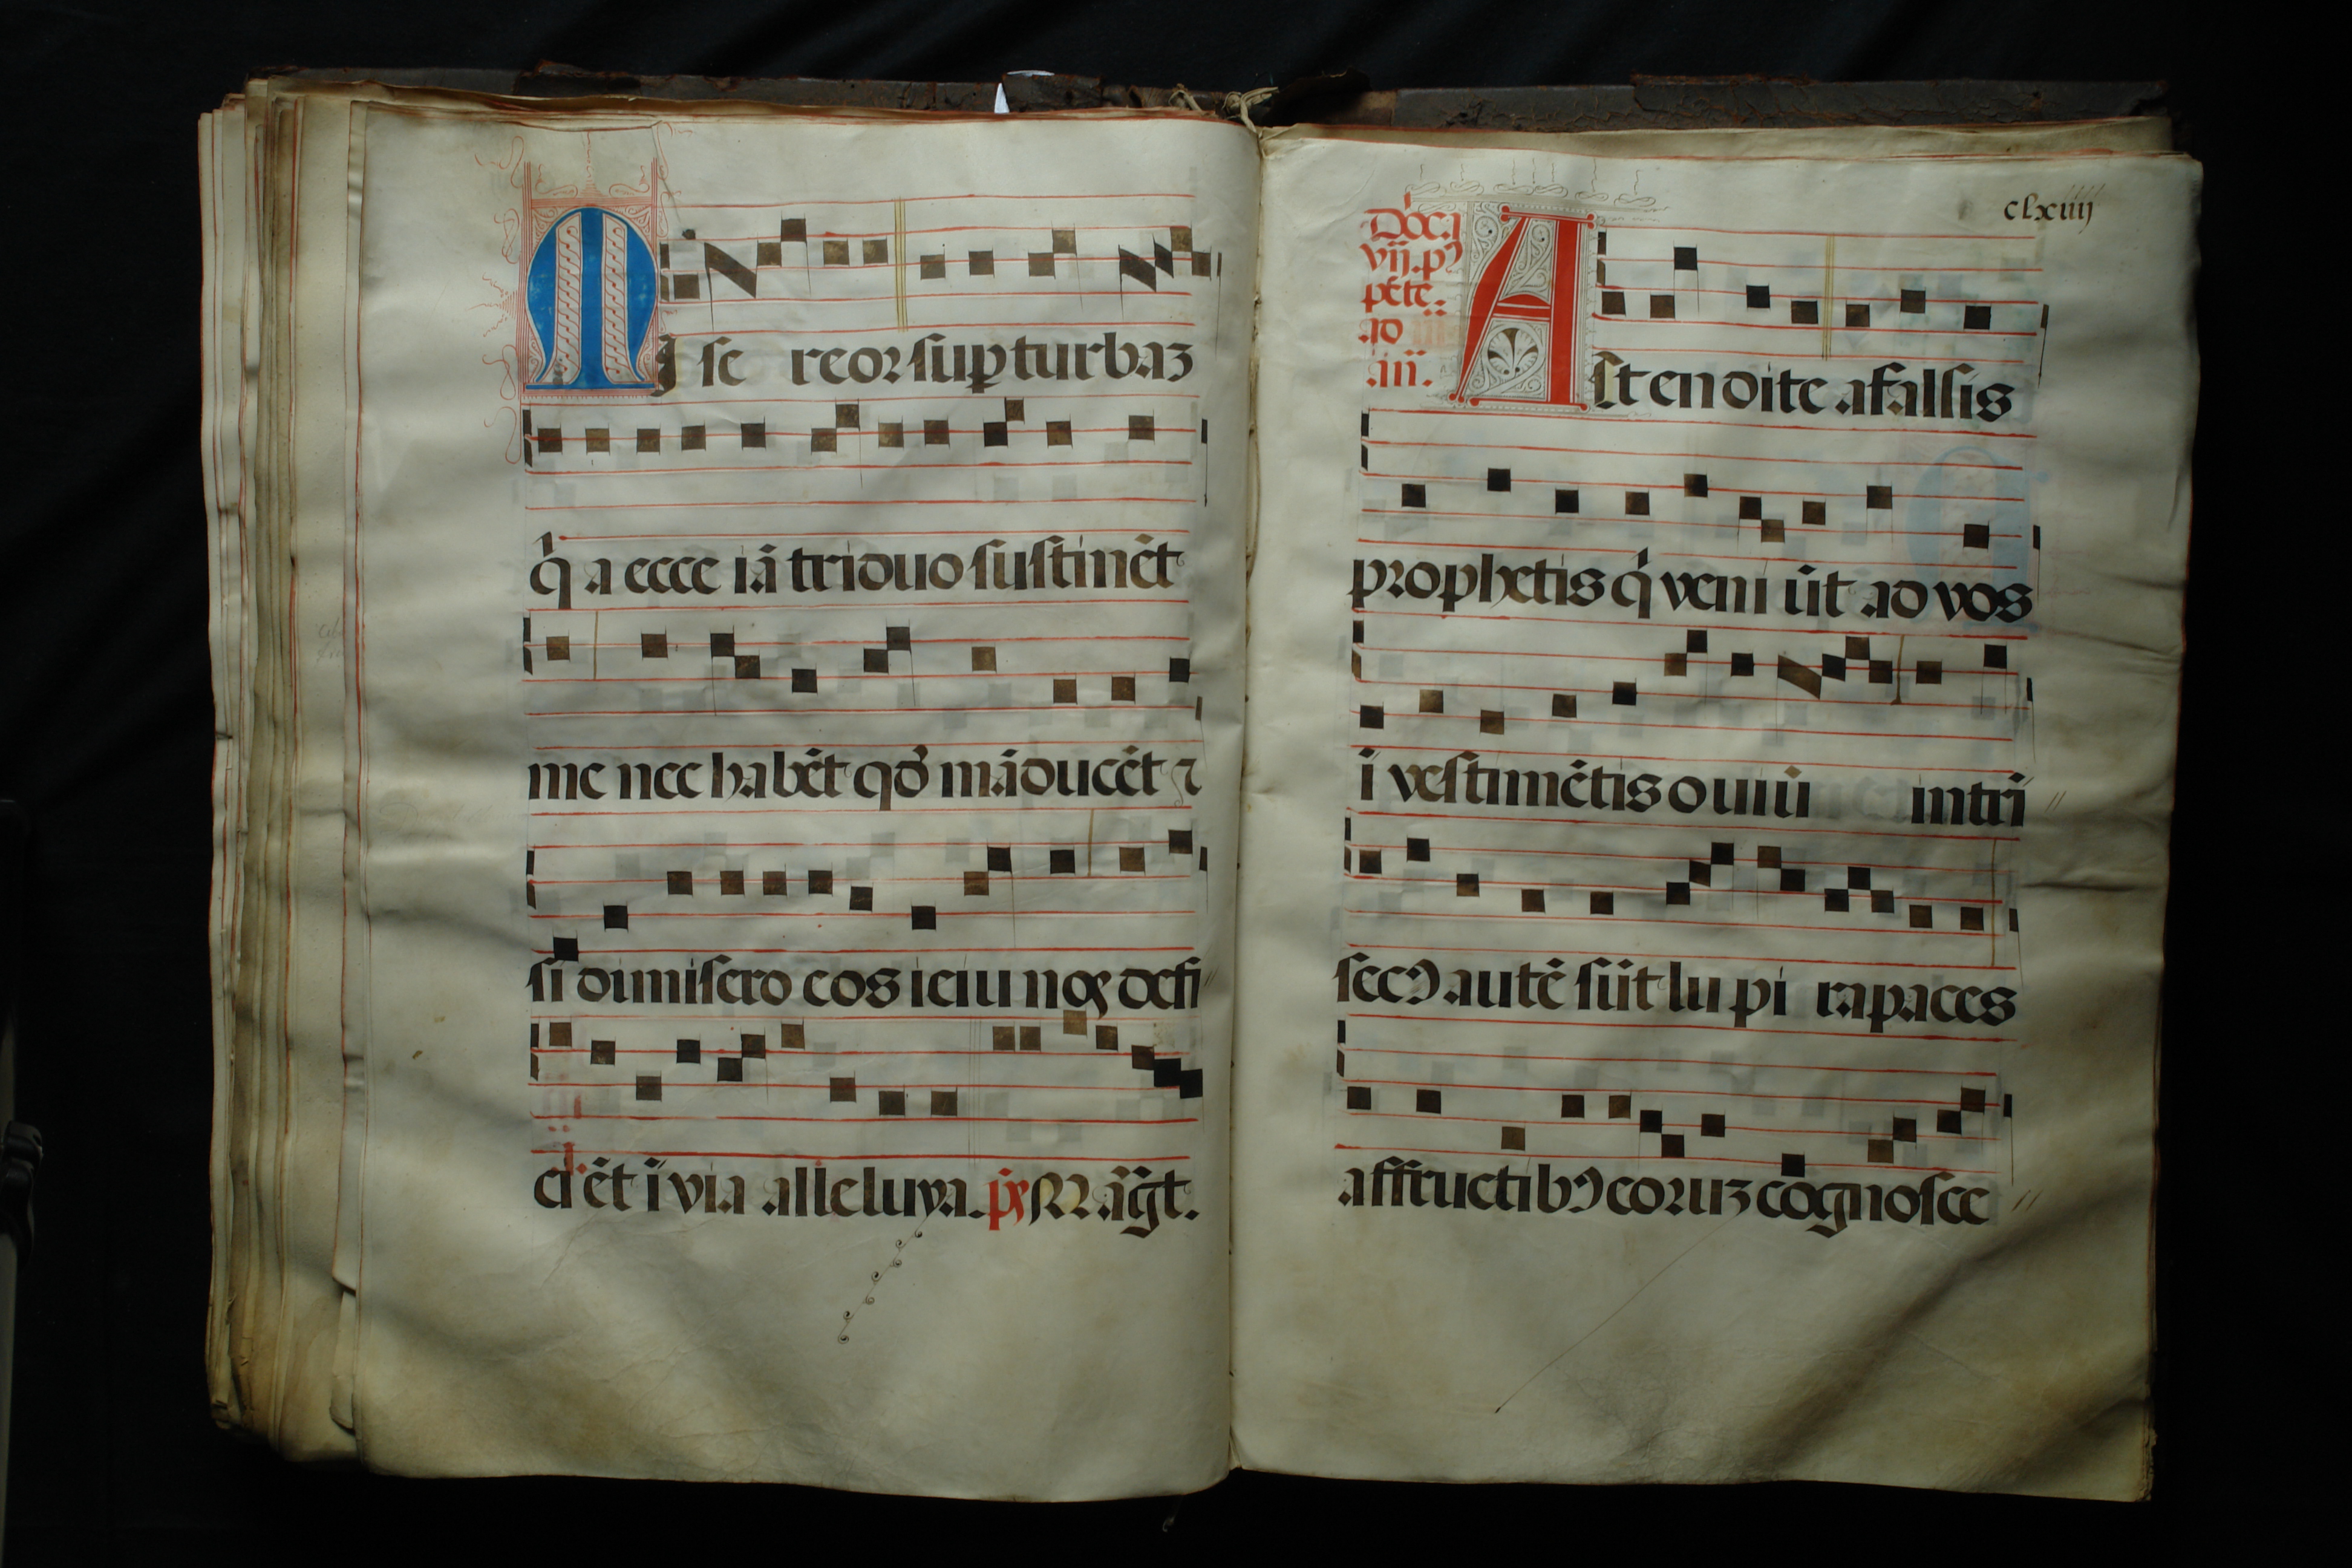 Mi se reor sup turbaz
q̇ a ecce iã triduo sustinẽt
me nec habẽt qđ mãducẽt ⁊
si dimisero eos ieiunoꝝ defi
ciẽt ĩ via alleluya. ps̃ Magt̃.
clxiiij
Doc.i
vij. pꝰ
pẽte.
ad
iij.
Attendite a falsis
prophetis q̇ veniũt ad vos
ĩ vestimẽtis ouiũ intrĩ
secꝰ autẽ sũt lupi rapaces
affructibꝰ eoruz cõgnosce